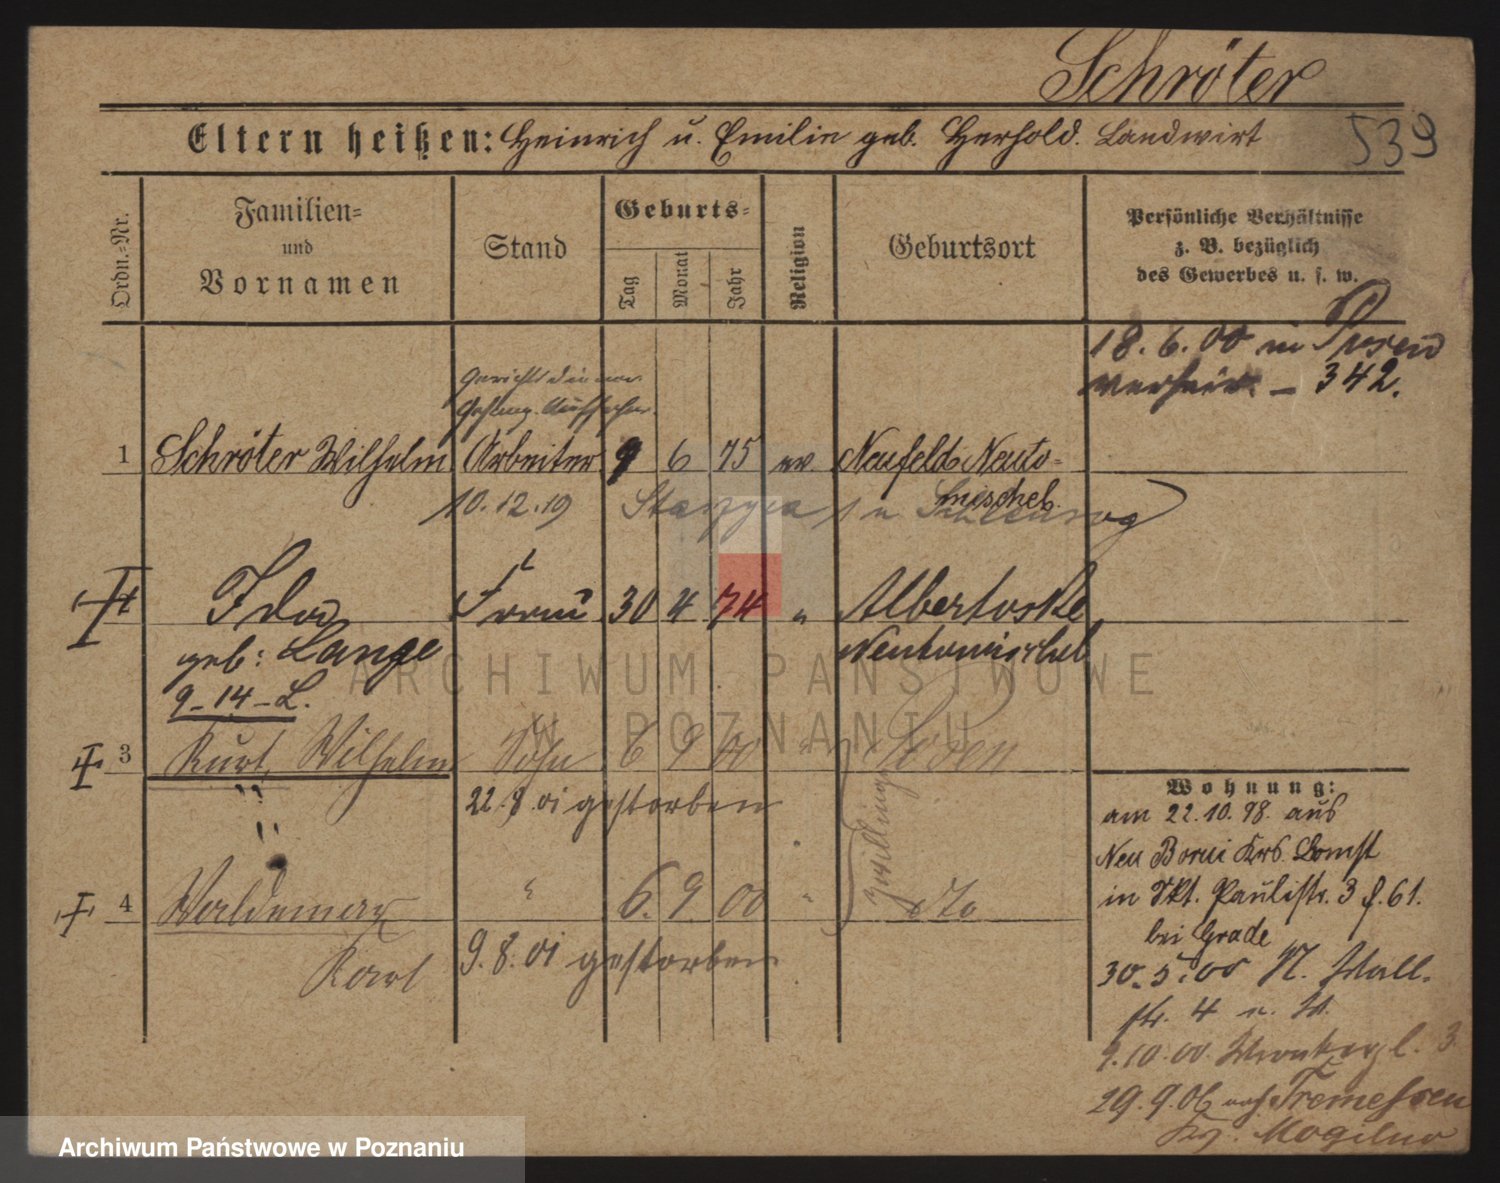 Schröter
539
Eltern heißen: Heinrich u. Emilie geb. Herhold. Landwirt
Ordn.-Nr.
Familien-
und
Vornamen
Stand
Geburts-
Tag
Monat
Jahr
Religion
Geburtsort
Persönliche Verhältnisse
z. B. bezüglich
des Gewerbes u. s. w.
18.6.00 in Posen
verheir. – 342.
Gerichtsdiener
Gefang. Aufseher
1 Schröter Wilhelm Arbeiter 9 6 75 ev. Neufeld Neuto-
mischel
10.12.19
Ida Frau 30 4 74 " Albertoske
geb: Lange Neutomischel
9–14–L.
3 Kurt, Wilhelm Sohn 6 9 00 " Posen
22.8.01 gestorben
Zwillinge
4 Waldemar " 6. 9 00 " dto
Karl
9.8.01 gestorben
Wohnung:
am 22.10.98. aus
Neu Borui Krs. Bomst
in Pkt. Paulistr. 3 f. 61.
bei Grade
30.5.00 N. Wall-
str. 4 u. W.
9.10.00. Wronkerpl. 3
29.9.06 nach Tremessen
Krs. Mogilno
ARCHIWUM PAŃSTWOWE
W POZNANIU
Archiwum Państwowe w Poznaniu